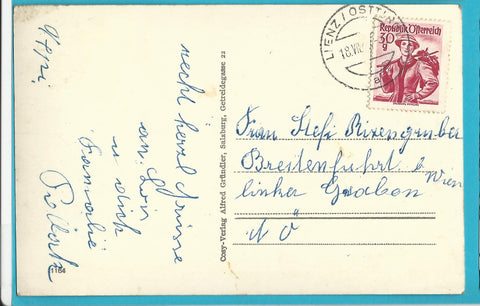 recht herzl Grüsse
an
u dich
Familie
1164
Cosy-Verlag Alfred Gründler, Salzburg, Getreidegasse 22
LIENZ / OSTTIROL
18.VII
Republik Österreich
30 g
Frau Stefi Rixengruber
Breitenfuhrt b Wien
linker Graben
N Ö